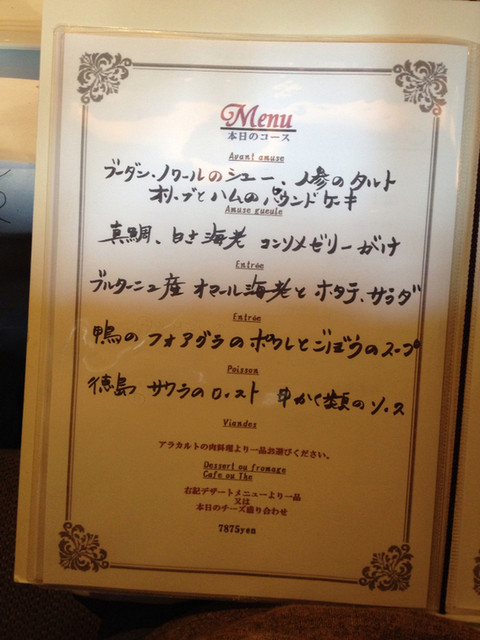 Menu
本日のコース
Avant amuse
ブーダン・ノワールのシュー、人参のタルト
オリーブとハムのパウンドケーキ
Amuse gueule
真鯛、白さ海老 コンソメゼリーがけ
Entrée
ブルターニュ産 オマール海老とホタテ、サラダ
Entrée
鴨のフォアグラのポワレとごぼうのスープ
Poisson
徳島 サワラのロースト 甲かく類のソース
Viandes
アラカルトの肉料理より一品お選びください。
Dessert ou fromage
Cafe ou The
右記デザートメニューより一品
又は
本日のチーズ盛り合わせ
7875yen